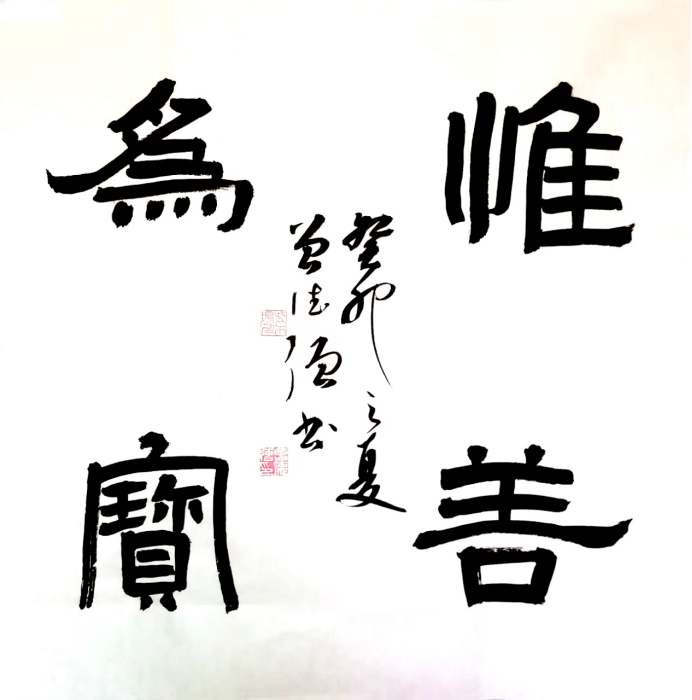 惟善
為寶
癸卯之夏
曾德强書